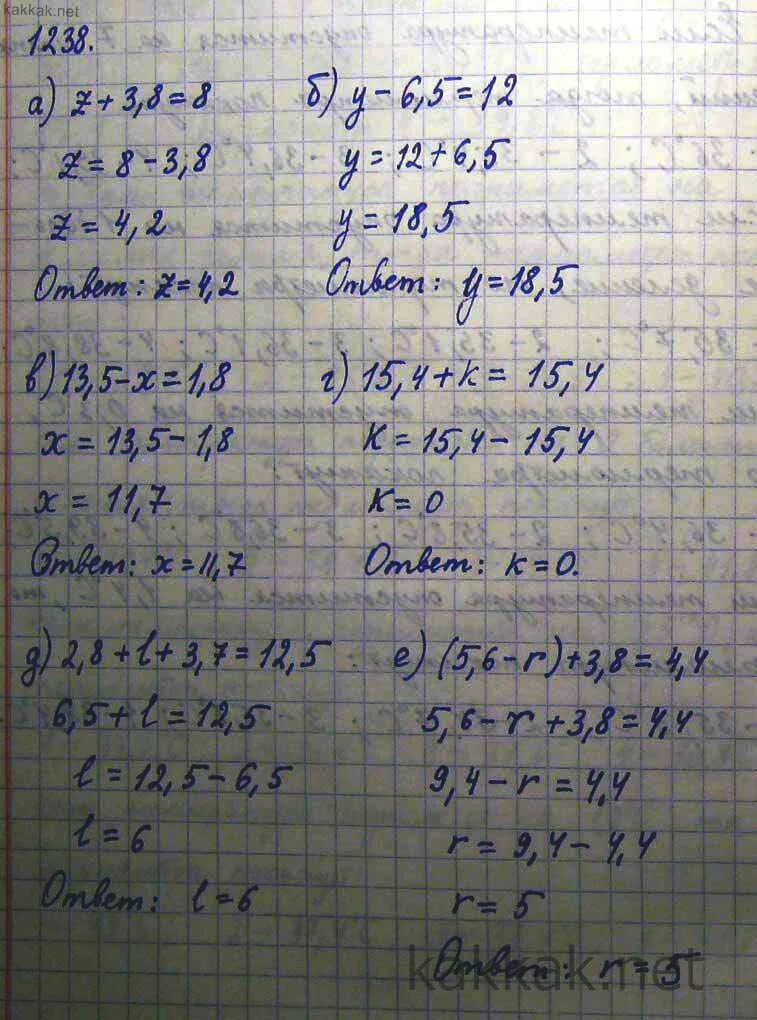 kakkak.net
1238.
а) z + 3,8 = 8
z = 8 - 3,8
z = 4,2
Ответ: z = 4,2
б) y - 6,5 = 12
y = 12 + 6,5
y = 18,5
Ответ: y = 18,5
в) 13,5 - x = 1,8
x = 13,5 - 1,8
x = 11,7
Ответ: x = 11,7
г) 15,4 + k = 15,4
K = 15,4 - 15,4
K = 0
Ответ: k = 0.
д) 2,8 + l + 3,7 = 12,5
6,5 + l = 12,5
l = 12,5 - 6,5
l = 6
Ответ: l = 6
е) (5,6 - r) + 3,8 = 4,4
5,6 - r + 3,8 = 4,4
9,4 - r = 4,4
r = 9,4 - 4,4
r = 5
Ответ: r = 5
kakkak.net